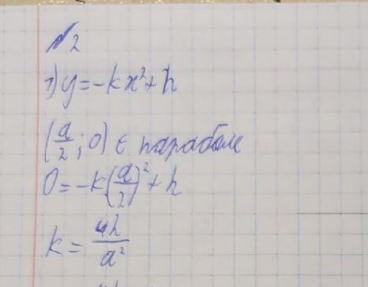 №2
1) y = -kx² + h
(a/2; 0) ∈ параболе
0 = -k(a/2)² + h
k = 4h/a²